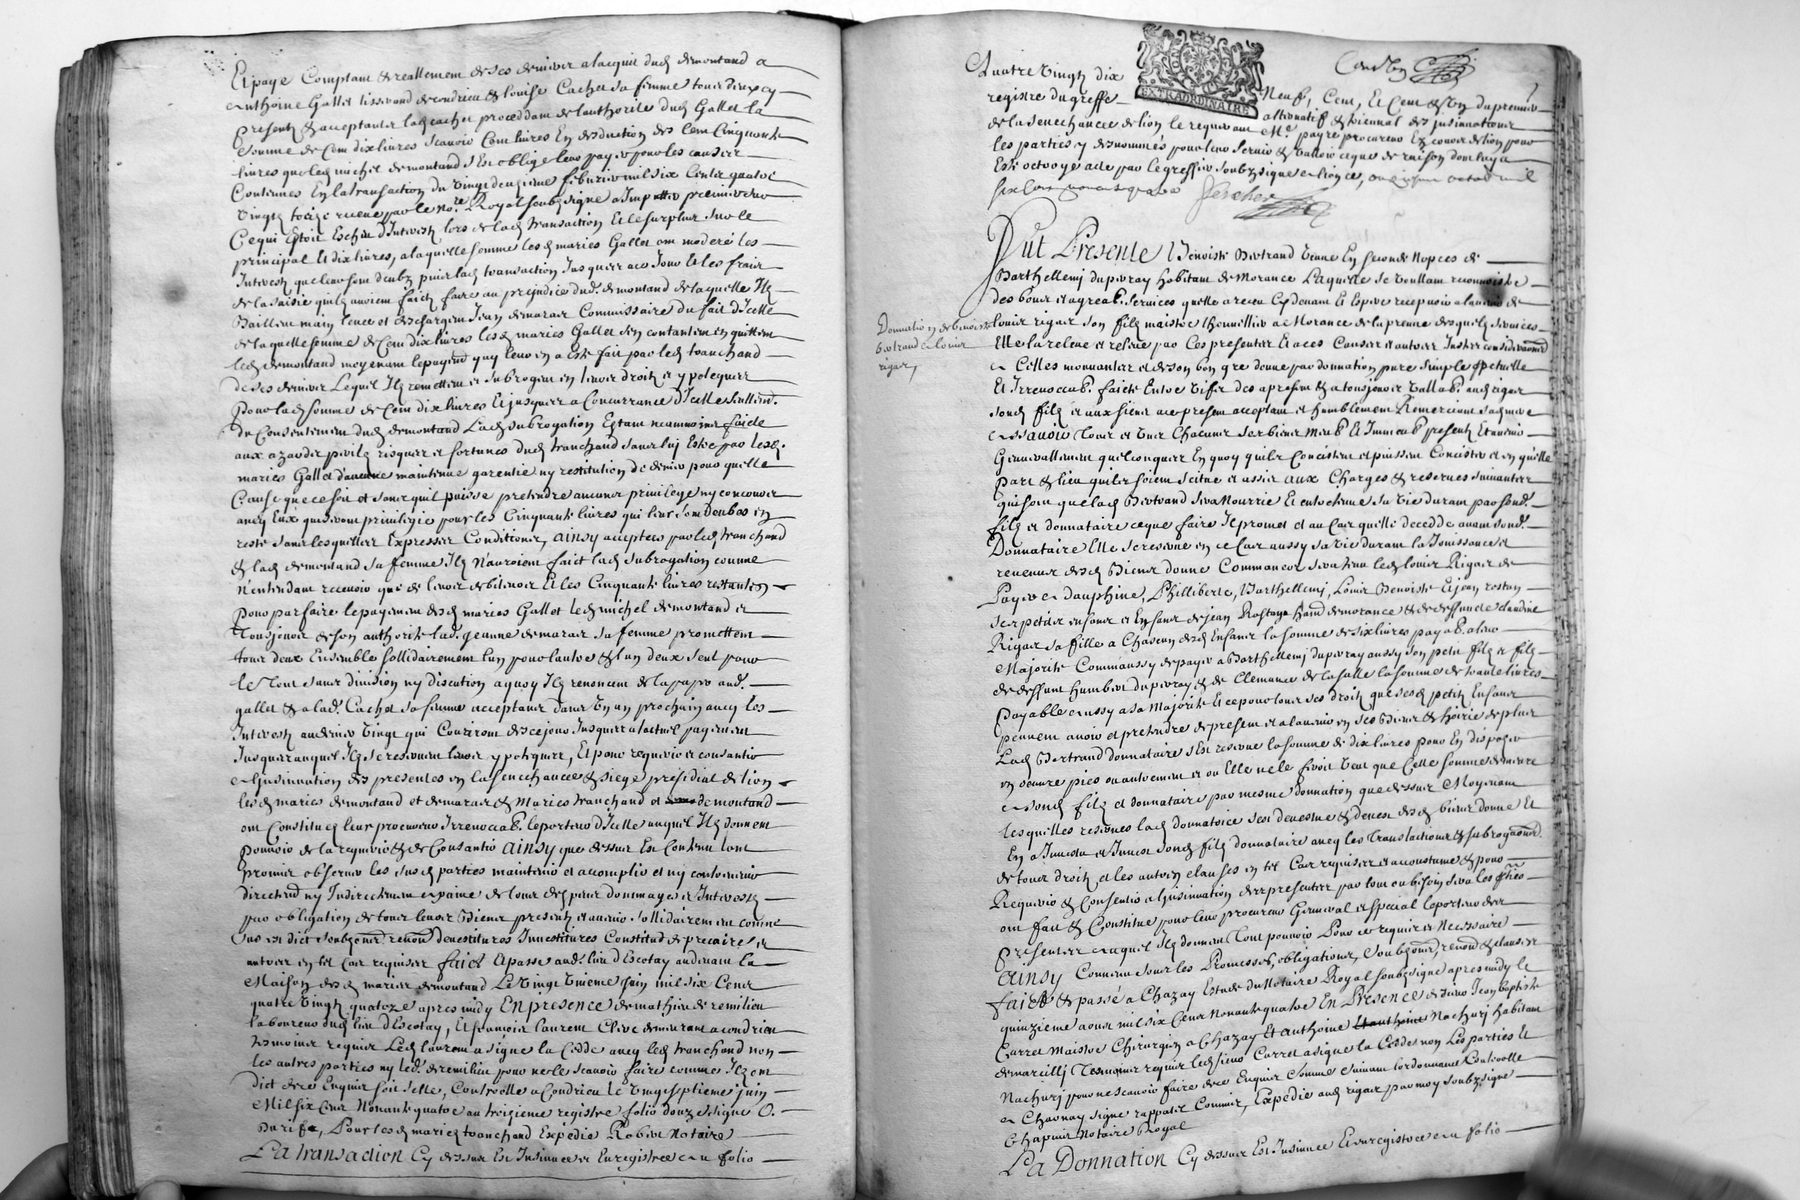 Et paye Comptant & reallement de ses deniers a lacquit dud demontand a
Anthoine Gallet tisserand de condrieu & louise Cachet sa femme tous deux cy
presents & acceptants lad cachet proceddant de lauthorite dud Gallet la
somme de Cent dix livres scavoir Cent livres En desduction des Cent Cinquante
livres que led michel demontand sEst oblige leur payer pour les causes
Contenues En la transaction du vingt deuxieme febvrier mil six Cents quatre
vingts treize receue par le no.re Royal soubsigne a Imputter premierement
Ce qui Estoit Escheu dInterests lors de lad transaction Et le surplus sur le
principal Et dix livres, a laquelle somme les d maries Gallet ont moderé les
Interests que leur sont deubz puis lad transaction Jusques a ce Jour Et les frais
de la saisie quilz avoient faict faire au prejudice dud. demontand de laquelle Ilz
Baillent main levee et deschargent Jean demaras Commissaire du fait dIcelle
de laquelle somme de Cent dix livres les d maries Gallet sen contantent en quittent
led demontand moyenant le payemt quy leur en a Este fait par led tranchand
de ses deniers Lequel Ilz remettent et subrogent en leurs droits et ypoteques
pour lad somme de Cent dix livres Et jusques a Concurrance dIcelle seullemt.
du Consentement dud demontand Lad subrogation Estant neammoins faicte
aux azards perilz risques et fortunes dud tranchand sans luy Estre par lesd.
maries Gallet daucune maintenue garentie ny restitution de deniers pour quelle
Cause que ce soit et sans quil puisse pretendre aucuns privilege ny concourir
avec Eux qui seront privilegie pour les Cinquante livres qui leur sont deubes en
reste sans lesquelles Expresses Conditions, ainsy acceptees par led tranchand
& lad demontand sa femme Ilz nauroient faict lad subrogation comme
nentendant recevoir que de leurs debiteurs Et les Cinquante livres restantes
pour parfaire le payement desd maries Gallet led michel demontand et
Tousjours de son authorite lad. jeanne demaras sa femme promettent
tous deux Ensemble sollidairement lun pour lautre & lun deux seul pour
le Tout sans division ny discution a quoy Ilz renoncent de la payer aud.
gallet & a lad. Cachet sa femme acceptants dans Un an prochain avec les
Interests au denier vingt qui Couriront des ce jour Jusques a lactuel payement
Jusques auquel Ilz se reservent leurs ypoteques, Et pour requerir et consantir
a lInsinuation des presentes en la senechaucee & siege presidial de lion
les d maries demontand et demaras & Maries tranchand et demontand
ont Constitues leur procureur Irrevocab. le porteur dIcelle auquel Ilz donnent
pouvoir de la requerir & de Consantir ainsy que dessus Est Contenu lont
promis observer les susd parties maintenir et accomplir et ny contrevenir
directemt ny Indirectement a peine de tous despens dommages et Interests
par obligation de tous leurs Biens presents et avenir sollidairement comme
sus est dict soubzmions renons devestitures Investitures Constitud & precaires et
autres en tel Cas requises faict & passe aud. lieu dEscotay au devant la
Maison desd maries demontand Le vingt vnieme juin mil six Cens
quatre vingts quatoze apres midy En presence de mathieu de remilieu
laboureur dud lieu dEscotay, Et françois laurent Clerc demeurant a condrieu
tesmoins requis Led laurent a signe la Cedde avec led tranchand non
les autres parties ny led. de remilieu pour ne le scavoir faire comme Ilz ont
dict de ce Enquis soit scelle, Controlle a Condrieu le vingt septieme juin
Mil six Cens Nonante quatre au troizieme registre folio douze signe O.
Barife, Pour les d maries tranchand Expedie Robert Notaire
La transaction Cy dessus Est Insinuee et Enregistree au folio
Quatre vingts dix
EXTRAORDINAIRE
Neuf, Cent, Et Cent & Un du premier
registre du greffe
alternatif & triennal des Insinuations
de la senechaucee de lion le requerant Me. payre procureur Es cours de lion pour
les parties y desnommés pour leur servir & valloir ce que de raison dont leur a
Este octroyé acte par le greffier soubzsigne a lion ce, octobre mil
six Cens nonante quatre
Donnation de benoiste
bertrand a louis
rigas
Fut Presente Benoiste Bertrand veuve En seconde Nopces de
Barthellemj dupivray habitant de Morance Laquelle se voullant reconnoistre
des bons et agreab. services quelle a receu Cydevant Et Espere recepvoir a lavenir de
louis rigas son filz maistre thonnellier a Morance de la preuve desquelz services
Elle la releve et releve par Ces presentes Et a ces Causes et autres Justes considerations
a Celles mouvantes et de son bon gre donne par donnation pure simple perpetuelle
Et Irrevocab. faicte Entre vifz des apresent & a tousjours vallab. aud rigas
sond filz et aux siens a ce present acceptant et humblement Remerciant sad mere
assavoir Tous et Uns Chacuns ses biens meub Et Immeub presents Et avenir
Generallement quelconques En quoy quilz Concistent et puissent Concister et en quelle
part & lieu quilz soient scitues et assis aux Charges & reserves suivantes
qui sont que lad Bertrand sera Nourrie Et entretenue sa vie durant par sond.
filz et donnataire ce que faire Il promet et au Cas quelle decedde avant sond.
Donnataire Elle se reserve en ce Cas aussy sa vie durant la Jouissance et
revenus desd Biens donne Commancer sera tenu led louis Rigas de
Payer a dauphine, Philliberte, Barthellemj, Louis Benoiste Et jean rostan
ses petits enfans et Enfans de jean Rostang habt de morance & de deffuncte claudine
Rigas sa fille a Chacun desd Enfans la somme de six livres payab. a leur
Majorite Comm aussy de payer a Barthellemj dupivray aussy son petit filz & filz
de deffunt humbert dupivray & de Clemence de la salle la somme de trante livres
payable aussy a sa Majorite Et ce pour tous ses droits que sesd petits Enfans
peuvent avoir et pretendre de present et a lavenir en ses Biens & hoirie de plus
Lad Bertrand donnataire sEst reserve la somme de dix livres pour En disposer
en oeuvre pies ou autrement et ou Elle ne le feroit veut que Celle somme demeure
a sond filz et donnataire par mesme donnation que dessus Moyenant
lesquelles reserves lad donnatrice sest devestue & devest desd biens donne Et
En a Investu et Invest sond filz donnataire avec les Translactions & subrogations
de tous droits et les autres clauses en tel Cas requises et accoustume & pour
Requerir & Consentir a lInsinuation des presentes par tout ou besoin sera les parties
ont fait & Constitue pour leur procureur General et special le porteur des
presentes auquel Ilz donnent Tout pouvoir pour ce requis et Necessaire
ainsy Convenu sous les Promesses, obligations, soubzmions, renons & clauses
faict & passé a Chazay Estude du Notaire Royal soubzsigne apres midy le
quinzieme aoust mil six Cens Nonante quatre En Presence de sieur Jean baptiste
Carret Maistre Chirurgien a Chazay Et anthoine Nachurj habitant
de marcillj Tesmoins requis led sieur Carret a signe la Cedde non Les parties Et
Nachurj pour ne scavoir faire de ce Enquis Comme suivant lordonnance Controlle
a Charnay signe rappatel Commis, Expedie aud rigas par moy soubzsigne
Chapuis Notaire Royal
La Donnation Cy dessus Est Insinuee Et enregistree au folio